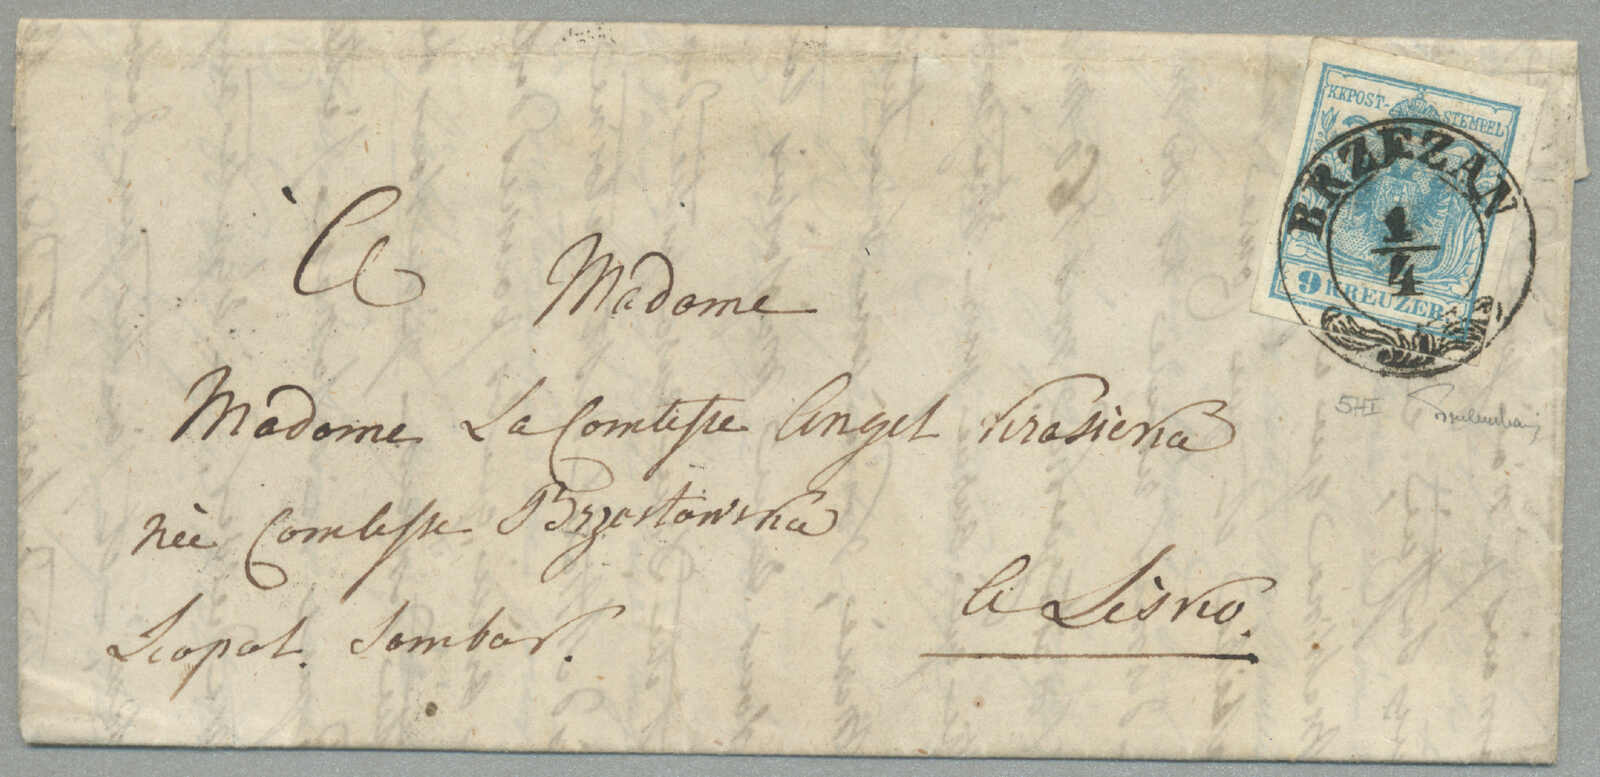 KKPOST-STEMPEL
BRZEZAN
1/4
9 KREUZER
à
Madame
Madame La Comtesse Angel Krasicka
née Comtesse Brzostowska
à Lisko.
par Sambor.
5HI